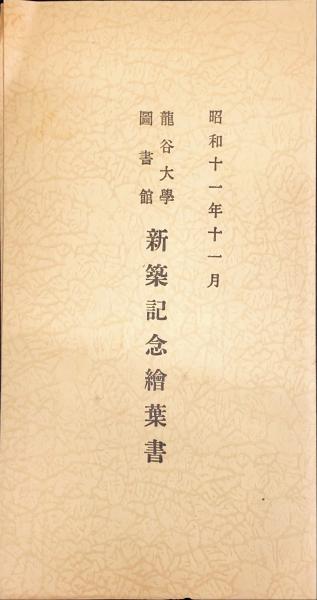 昭和十一年十一月
龍谷大學
圖書館
新築記念繪葉書